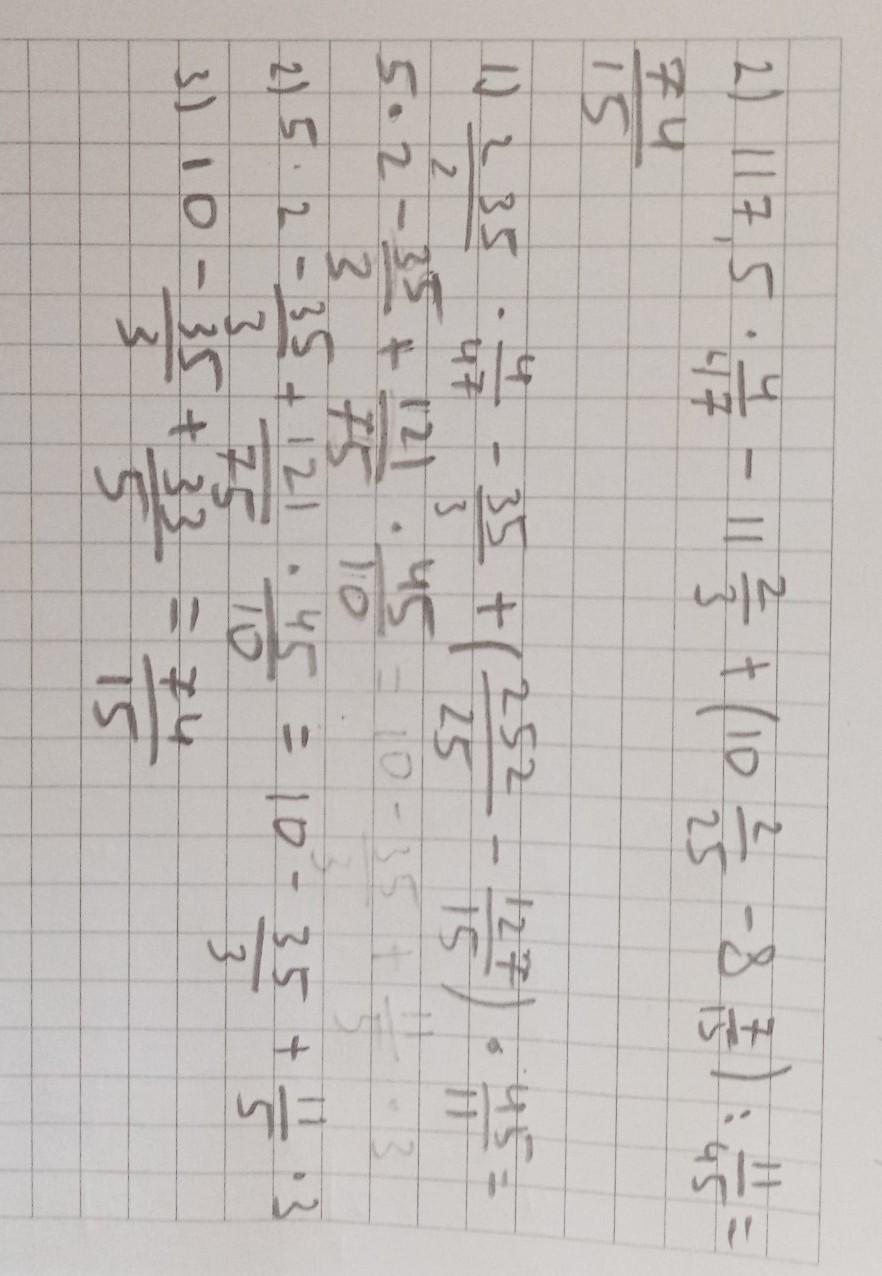 2) 117,5 · 4/47 - 11 2/3 + (10 2/25 - 8 7/15) : 11/45 =
74/15
1) 235/2 · 4/47 - 35/3 + (252/25 - 127/15) · 45/11 =
5 · 2 - 35/3 + 121/75 · 45/10 = 10 - 35/3 + 11/5 · 3
2) 5 · 2 - 35/3 + 121/75 · 45/10 = 10 - 35/3 + 11/5 · 3
3) 10 - 35/3 + 33/5 = 74/15